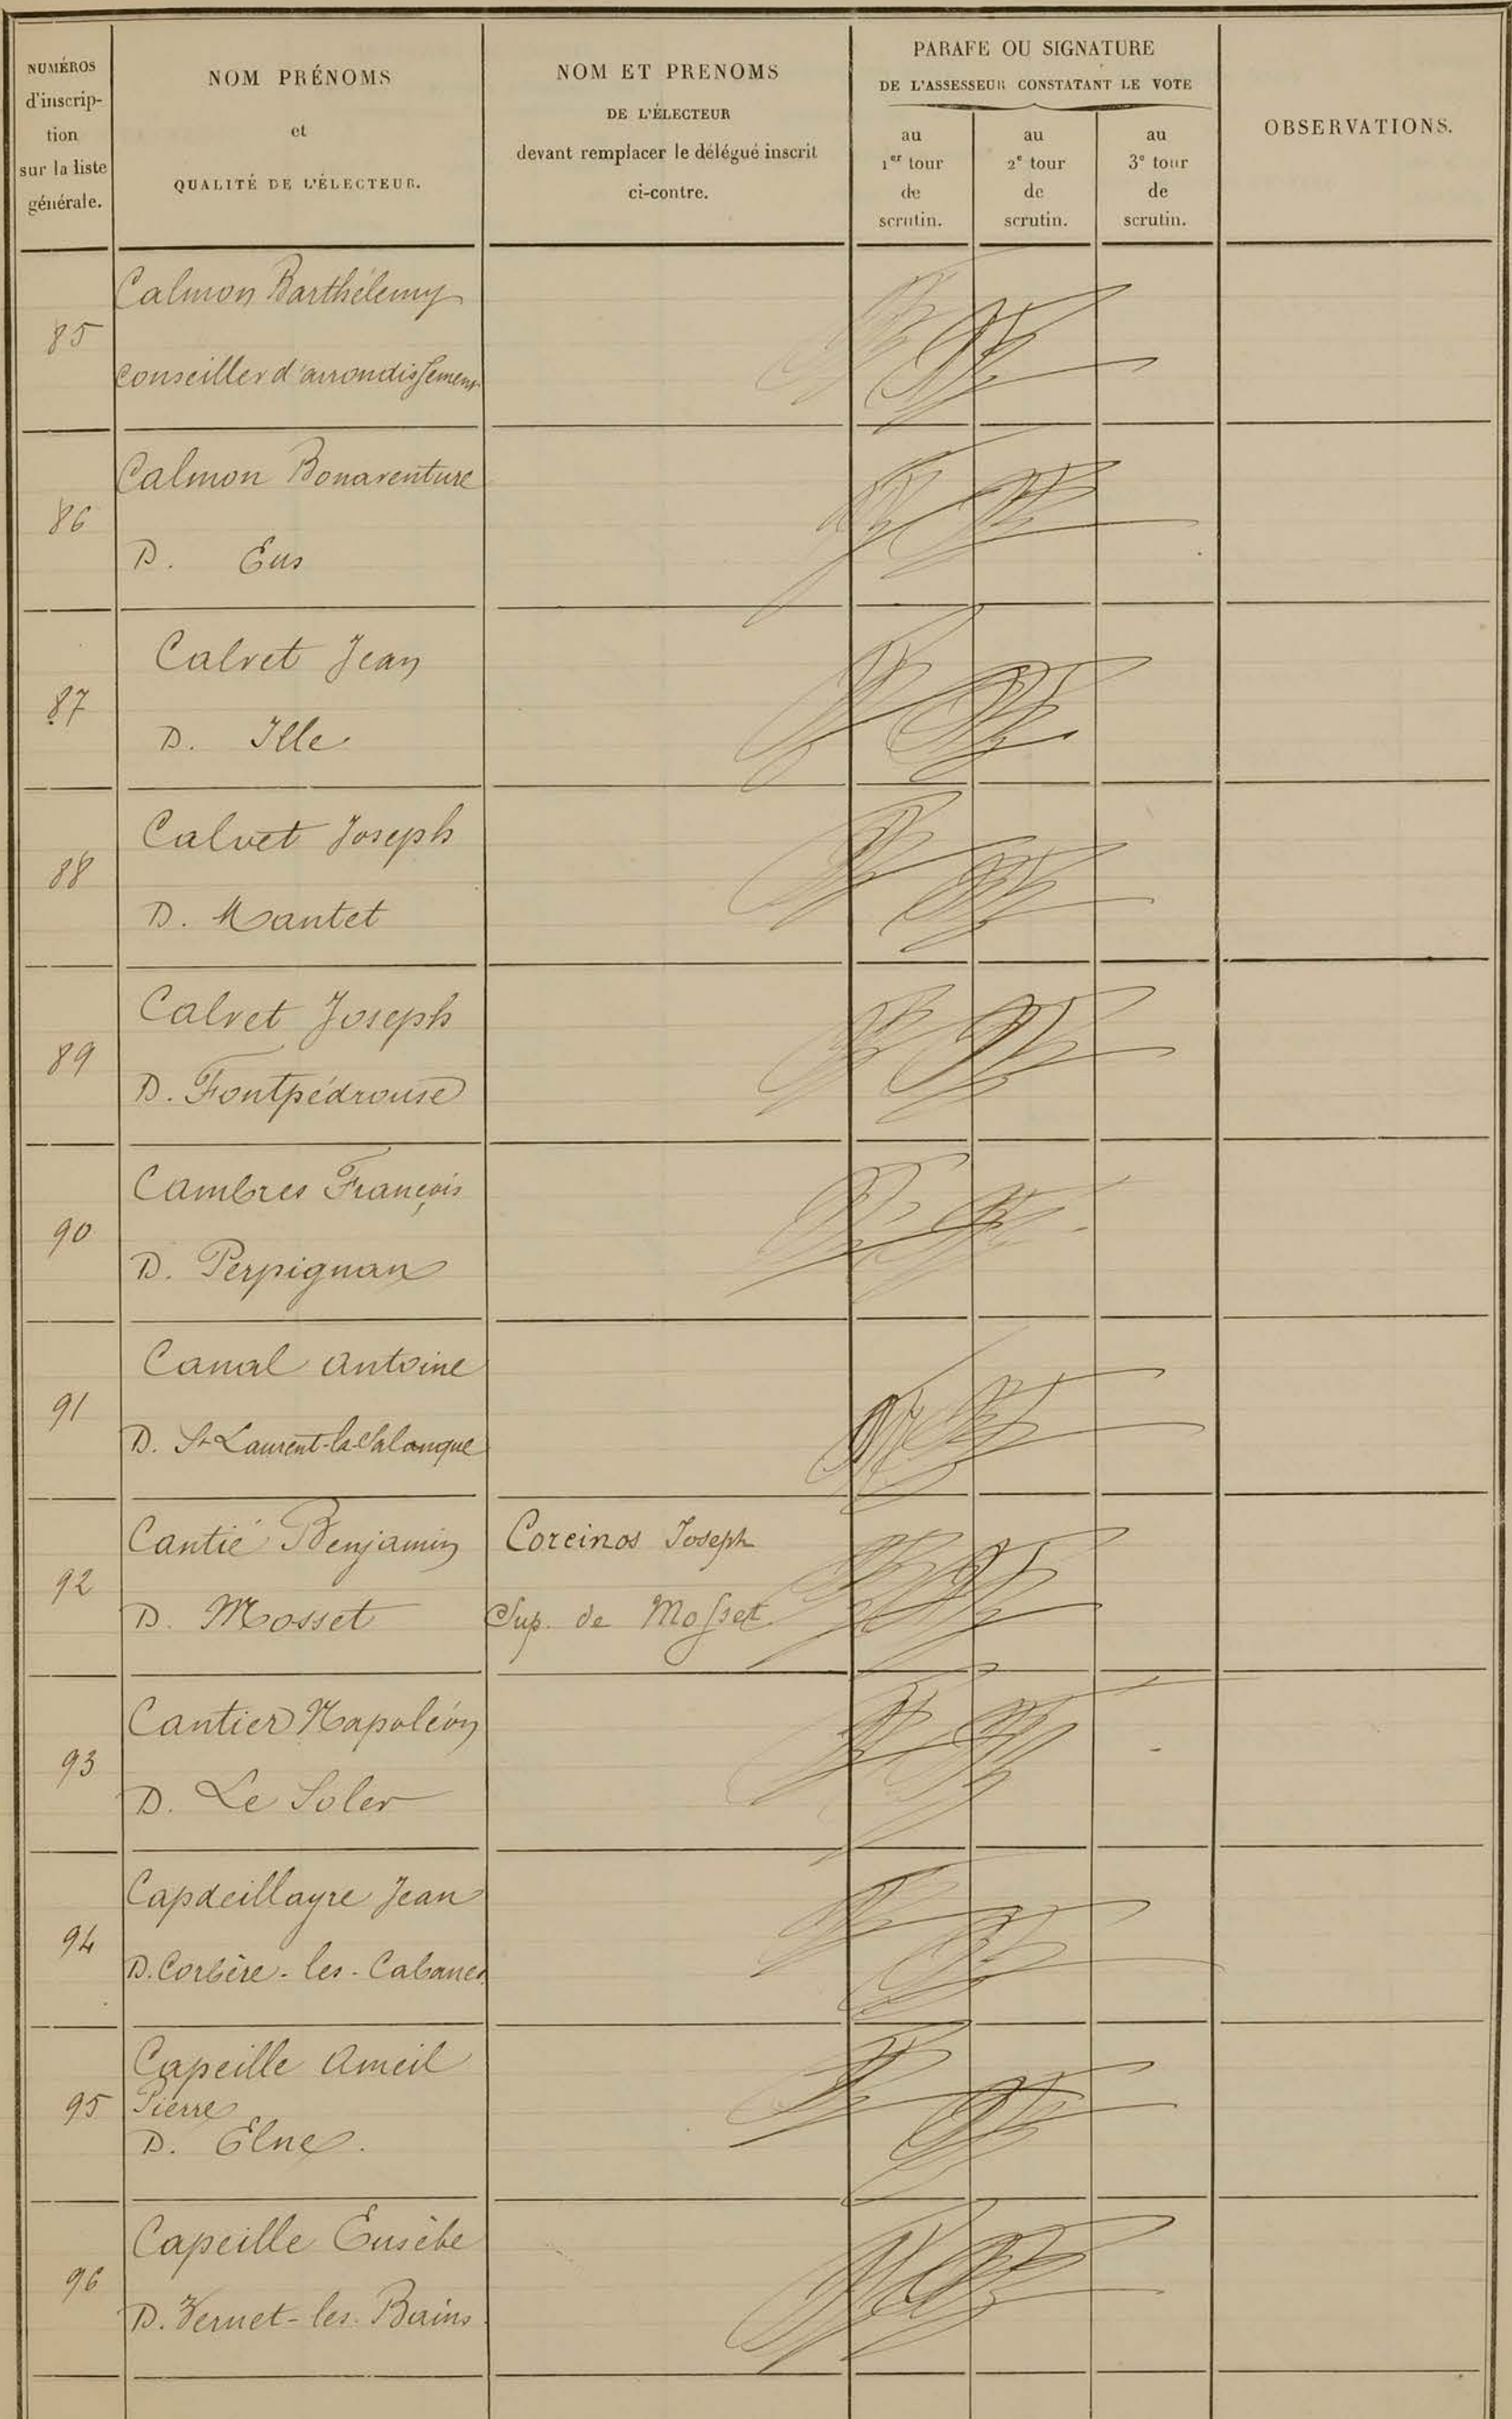 NUMÉROS
d'inscrip-
tion
sur la liste
générale.
NOM PRÉNOMS
et
QUALITÉ DE L'ÉLECTEUR.
NOM ET PRENOMS
DE L'ÉLECTEUR
devant remplacer le délégué inscrit
ci-contre.
PARAFE OU SIGNATURE
DE L'ASSESSEUR CONSTATANT LE VOTE
au
1er tour
de
scrutin.
au
2e tour
de
scrutin.
au
3e tour
de
scrutin.
OBSERVATIONS.
85
Calmon Barthélemy
Conseiller d'arrondissement
86
Calmon Bonaventure
D. Eus
87
Calvet Jean
D. Ille
88
Calvet Joseph
D. Mantet
89
Calvet Joseph
D. Fontpédrouse
90
Cambres François
D. Perpignan
91
Canal Antoine
D. St Laurent-la-Salanque
92
Cantié Benjamin
D. Mosset
Corcinos Joseph
Sup. de Mosset
93
Cantier Napoléon
D. Le Soler
94
Capdeillayre Jean
D. Corbère-les-Cabanes
95
Capeille Ameil
Pierre
D. Elne.
96
Capeille Eusèbe
D. Vernet-les-Bains